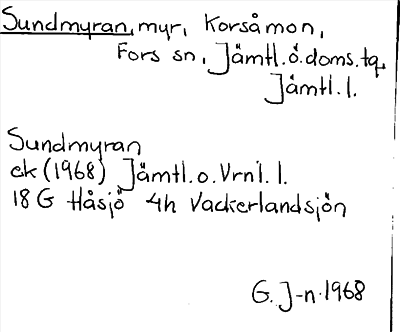 Sundmyran, myr, Korsåmon,
Fors sn, Jämtl.ö.doms.tg,
Jämtl.l.
Sundmyran
ek (1968) Jämtl.o.Vrnl.l.
18 G Håsjö 4h Vackerlandsjön
G. J-n.1968